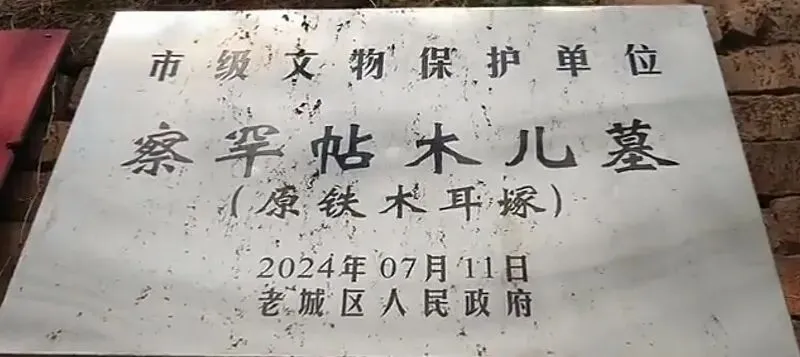 市级文物保护单位
察罕帖木儿墓
(原铁木耳塚)
2024年07月11日
老城区人民政府